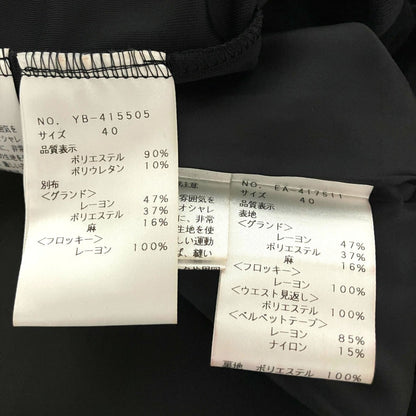 NO. YB-415505
サイズ 40
品質表示
ポリエステル 90%
ポリウレタン 10%
別布
<グランド>
レーヨン 47%
ポリエステル 37%
麻 16%
<フロッキー>
レーヨン 100%
雰囲気を
オシャレ
に、非常
生地を使
しい運動
ば、縫い
NO. EA-417511
サイズ 40
品質表示
表地
<グランド>
レーヨン 47%
ポリエステル 37%
麻 16%
<フロッキー>
レーヨン 100%
<ウエスト見返し>
ポリエステル 100%
<ベルベットテープ>
レーヨン 85%
ナイロン 15%
裏地
ポリエステル 100%